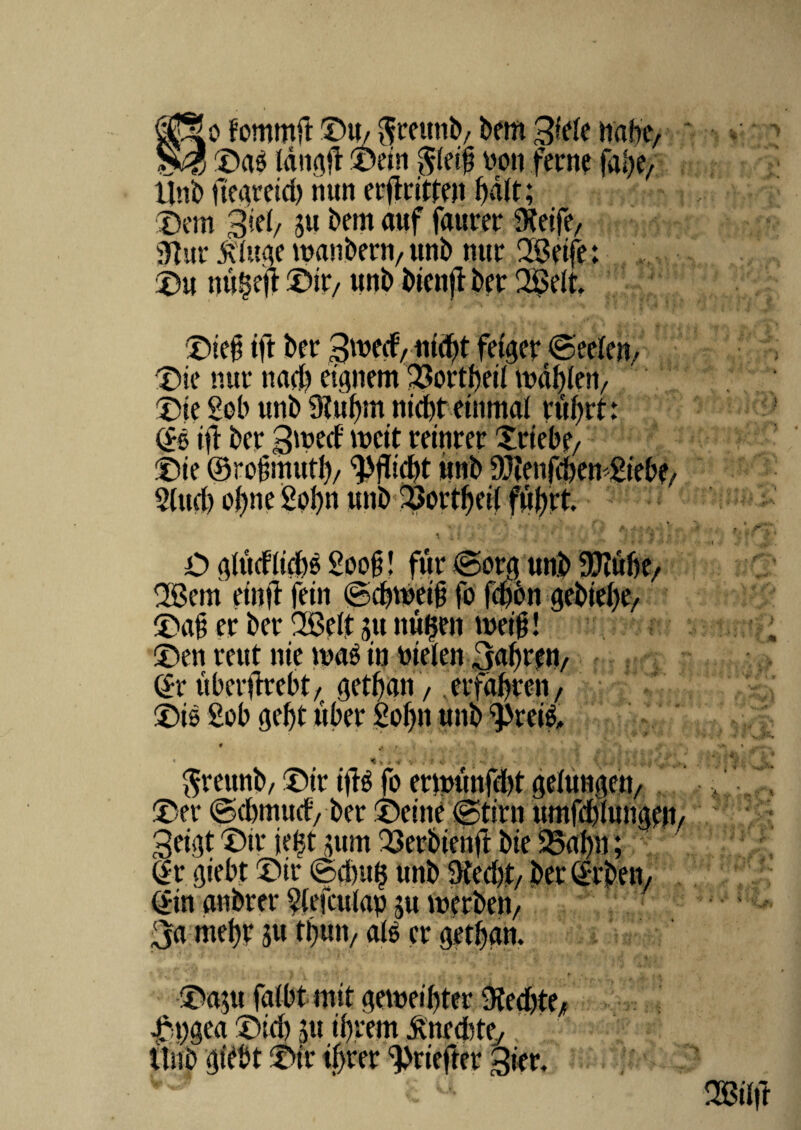 So kommst Du, Freund, dem Ziele nahe,
Das längst Dein Fleiß von ferne sahe,
Und siegreich nun erstritten hält;
Dem Ziel, zu dem auf saurer Reise,
Nur Kluge wandern, und nur Weise:
Du nützest Dir, und dienst der Welt.
Dieß ist der Zweck, nicht feiger Seelen,
Die nur nach eignem Vortheil wählen,
Die Lob und Ruhm nicht einmal rührt:
Es ist der Zweck weit reinrer Triebe,
Die Großmuth, Pflicht und Menschen-Liebe,
Auch ohne Lohn und Vortheil führt.
O glücklichs Looß! für Sorg und Mühe,
Wem einst sein Schweiß so schön gediehe,
Daß er der Welt zu nützen weiß!
Den reut nie was in vielen Jahren,
Er überstrebt, gethan, erfahren,
Dis Lob geht über Lohn und Preis.
Freund, Dir ists so erwünscht gelungen,
Der Schmuck, der Deine Stirn umschlungen,
Zeigt Dir jetzt zum Verdienst die Bahn;
Er giebt Dir Schutz und Recht, der Erden,
Ein andrer Aesculap zu werden,
Ja mehr zu thun, als er gethan.
Dazu salbt mit geweihter Rechte,
Hygea Dich zu ihrem Knechte,
Und giebt Dir ihrer Priester Zier.
Wilst